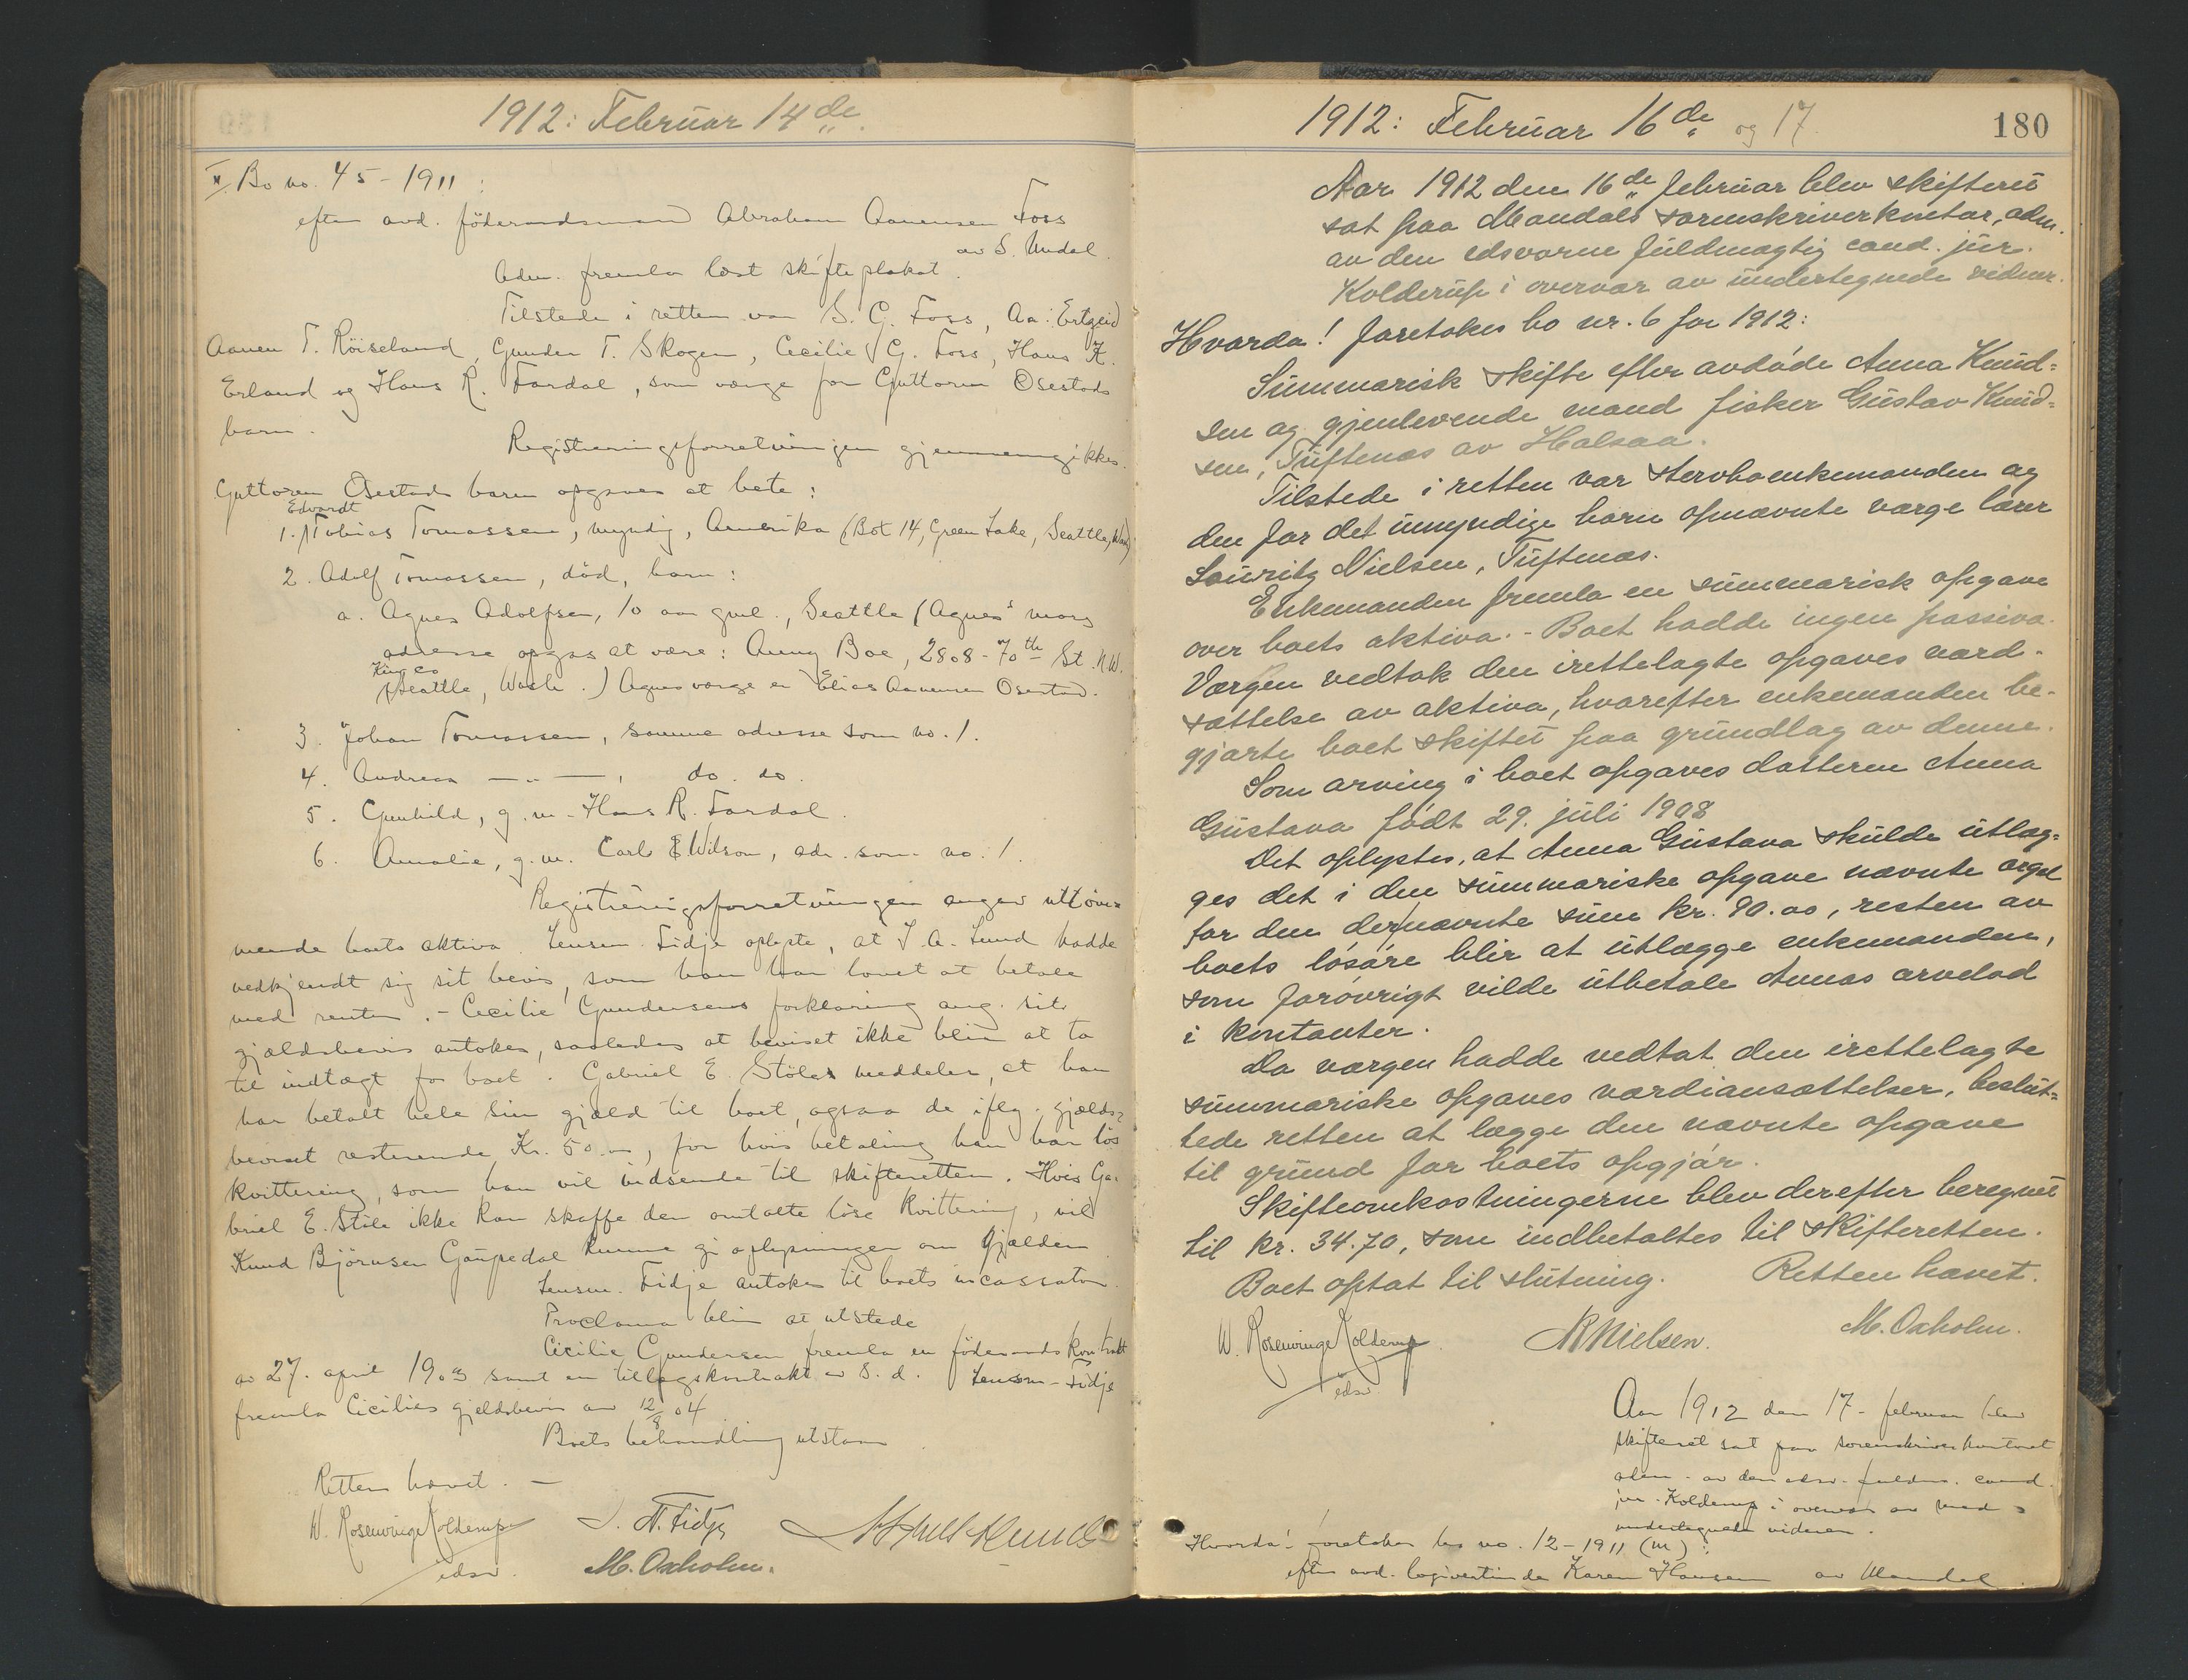 1912: Februar 14de.
X Bo no. 45-1911:
efter avd. föderaadsmand Abraham Aanensen Foss
av S. Undal.
Adm. fremla læst skifteplakat.
Tilstede i retten var S. G. Foss, Aa.
Aanen T. Röiseland, Gunder T. Skogen, Cecilie G. Foss, Hans K.
Erland og Hans R. Fardal, som værge for Guttorm Osestads
barn.
Registreringsforretningen gjennemgikkes.
Guttorm Osestads barn opgaves at hete:
Edvardt
1. Tobias Tomassen, myndig, Amerika (Bot 14, Green Lake, Seattle, Wash)
2. Adolf Tomassen, död, barn:
a. Agnes Adolfsen, 10 aar gml., Seattle (Agnes' mors
adresse opgas at være: Anny Boe, 2808-70th St. N.W.
King Co
Seattle, Wash.) Agnes værge er Elias Aanensen Osestad.
3. Johan Tomassen, samme adresse som no. 1.
4. Andreas —"—, do. do.
5. Gunhild, g.m. Hans R. Fardal.
6. Amalie, g.m. Carl E. Wilson, adr. som no. 1.
Registreringsforretningen angav uttöm=
mende boets aktiva. Lensm. Fidje oplyste, at J. A. Lund hadde
vedkjendt sig sit bevis, som han har lovet at betale
med renter. - Cecilie Gundersens forklaring ang. sit
gjældsbevis antokes, saaledes at beviset ikke blir at ta
til indtægt for boet. Gabriel E. Stölen meddeler, at han
har betalt hele sin gjæld til boet, ogsaa de iflg. gjælds=
beviset resterende Kr. 50.00, for hvis betaling han har lös
kvittering, som han vil indsende til skifteretten. Hvis Ga=
briel E. Stöle ikke kan skaffe den omtalte löse kvittering, vil
Knud Björnsen Gaupedal kunne gi oplysninger om gjælden.
Lensm. Fidje antokes til boets incassator.
Proclama blir at utstede
Cicilie Gundersen fremla en föderaadskontrakt
av 27. april 1903 samt en tillægskontrakt av s. d. Lensm. Fidje
fremla Cicilies gjeldsbevis av 12/8 04
Boets behandling utstaar.
Retten hævet. —
W. Rosenvinge Kolderup
edsv.
J. N. Fidje
M. Oxholm.
1912: Februar 16de og 17.
180
Aar 1912 den 16de februar blev skifteret
sat paa Mandals sorenskriverkontor, adm.
av den edsvorne fuldmægtig cand. jur.
Kolderup i overvær av undertegnede vidner.
Hvorda! foretokes bo nr. 6 for 1912:
Summarisk skifte efter avdöde Anna Knud=
sen og gjenlevende mand fisker Gustav Knud=
sen, Tuftenæs av Halsaa.
Tilstede i retten var stervboenkemanden og
den for det umyndige barn opnævnte værge lærer
Lauritz Nielsen, Tuftenæs.
Enkemanden fremla en summarisk opgave
over boets aktiva. - Boet hadde ingen passiva.
Værgen vedtok den irettelagte opgaves værd-
sættelse av aktiva, hvorefter enkemanden be-
gjærte boet skiftet paa grundlag av denne.
Som arving i boet opgaves datteren Anna
Gustava född 29. juli 1908
Det oplystes, at Anna Gustava skulde utlæg=
ges det i den summariske opgave nævnte orgel
for den dernævnte sum kr. 90.00, resten av
boets lösöre blir at utlægge enkemanden,
som forövrigt vilde utbetale Annas arvelod
i kontanter.
Da værgen hadde vedtat den irettelagte
summariske opgaves værdiansættelser, beslut=
tede retten at lægge den nævnte opgave
til grund for boets opgjör.
Skifteomkostningerne blev derefter beregnet
til kr. 34.70, som indbetaltes til skifteretten.
Boet optat til slutning. Retten hævet.
W. Rosenvinge Kolderup
edsv.
Nielsen.
M. Oxholm.
Aar 1912 den 17. februar blev
skifteret sat paa sorenskriverkontoret
adm. av den edsv. fuldm. cand.
jur. Kolderup i overvær av med=
undertegnede vidner.
Hvorda! foretokes bo no. 12-1911 (M):
efter avd. logivertinde Karen Hansen av Mandal.